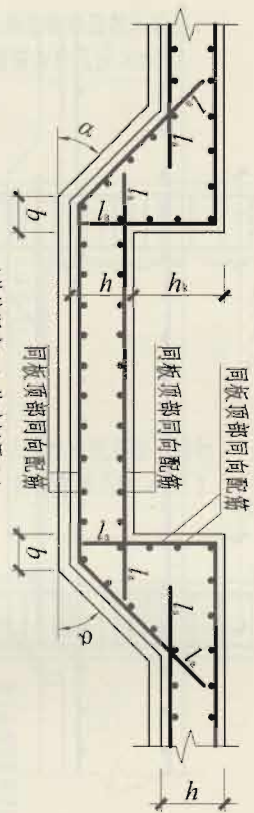 lₐ
lₐ
α
lₐ
lₐ
b
h
hₖ
同板顶部同向配筋
同板顶部同向配筋
同板顶部同向配筋
lₐ
lₐ
lₐ
lₐ
b
α
h